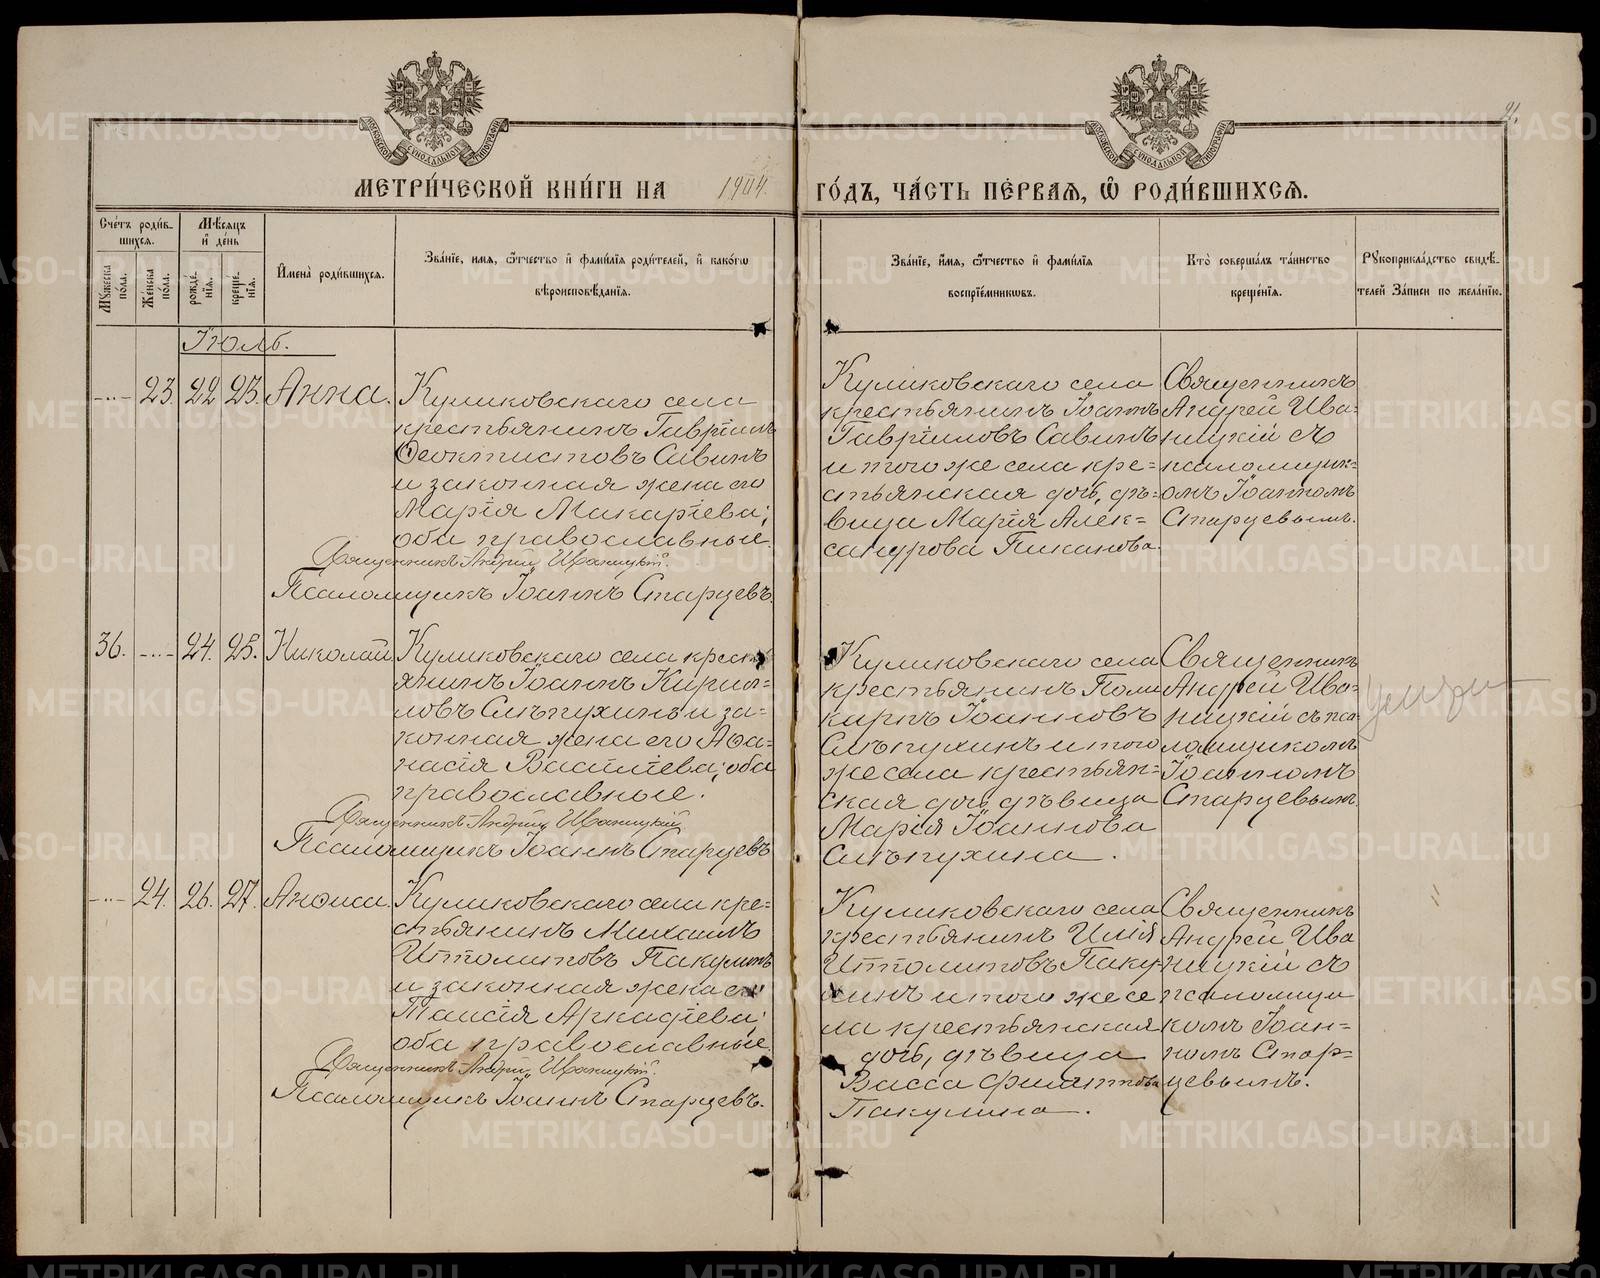 МОСКОВСКОЙ СѴНОДАЛЬНОЙ ТИПОГРАФІИ
МОСКОВСКОЙ СѴНОДАЛЬНОЙ ТИПОГРАФІИ
МЕТРИ́ЧЕСКОЙ КНИ́ГИ НА 1904 ГО́ДЪ, ЧА́СТЬ ПЕ́РВАЯ, Ѡ РОДИ́ВШИХСЯ.
Сче́тъ роди́в-
шихся.
Му́жеска по́ла.
Же́нска по́ла.
Мѣ́сяцъ
и҆ де́нь
рожде́-
нїя.
креще́-
нїя.
И҆мена̀ роди́вшихся.
Зва́нїе, имя, ѻ҆́тчество и҆ фами́лїя роди́телей, и҆ како́гѡ
вѣроисповѣ́данїя.
Зва́нїе, и҆́мя, ѻ҆́тчество и҆ фами́лїя
воспрїе́мникѡвъ.
Кто̀ соверша́лъ та́инство
креще́нїя.
Рꙋкоприкла́дство свидѣ́-
телей За́писи по жела́нїю.
Іюль.
-..- 23. 22 23. Анна.
Куликовскаго села
крестьянинъ Гавріилъ
Ѳеоктистовъ Савинъ
и законная жена его
Марія Макаріева;
оба православные.
Священникъ Андрей Иваницкій.
Псаломщикъ Іоаннъ Старцевъ.
Куликовскаго села
крестьянинъ Іоаннъ
Гавріиловъ Савинъ
и того же села кре=
стьянская дочь, дѣ=
вица Марія Алек=
сандрова Пиканова.
Священникъ
Андрей Ива=
ницкій съ
псаломщик=
омъ Іоанномъ
Старцевымъ.
36. -..- 24. 25. Николай
Куликовскаго села крест
янинъ Іоаннъ Кирил=
ловъ Слѣпухинъ и за=
конная жена его Аѳа=
насія Василіева; оба
православные.
Священникъ Андрей Иваницкій
Псаломщикъ Іоаннъ Старцевъ
Куликовскаго села
крестьянинъ Поли
карпъ Іоанновъ
Слѣпухинъ и того
же села крестьян=
ская дочь, дѣвица
Марія Іоаннова
Слѣпухина.
Священникъ
Андрей Ива=
ницкій съ пса
ломщикомъ
Іоанномъ
Старцевымъ.
-..- 24. 26. 27. Анѳиса.
Куликовскаго села кре=
стьянинъ Михаилъ
Ипполитовъ Пакулинъ
и законная жена его
Таисія Аркадіева;
оба православные.
Священникъ Андрей Иваницкій.
Псаломщикъ Іоаннъ Старцевъ.
Куликовскаго села
крестьянинъ Илія
Ипполитовъ Паку-
линъ и того же се
ла крестьянская
дочь, дѣвица
Васса Филиппова
Пакулина.
Священникъ
Андрей Ива
ницкій съ
псаломщи
комъ Іоан=
номъ Стар=
цевымъ.
METRIKI.GASO-URAL.RU